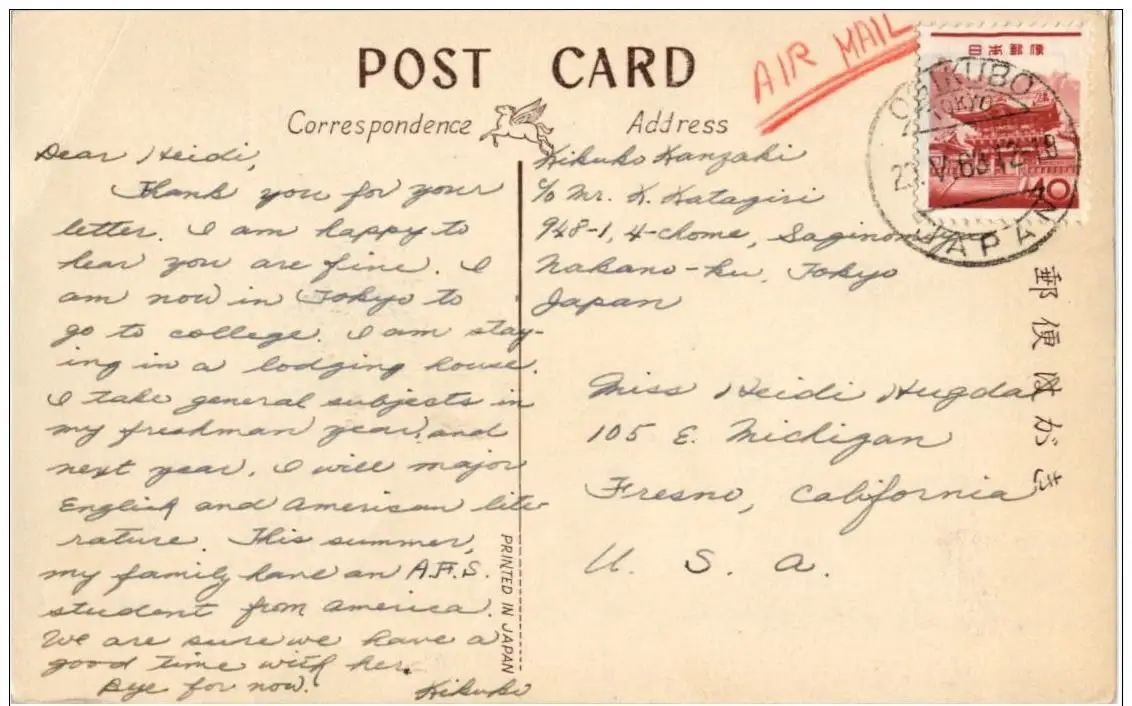 POST CARD
AIR MAIL
日本郵便
40
TOKYO
JAPAN
Correspondence
Address
Dear Heidi,
Thank you for your
letter. I am happy to
hear you are fine. I
am now in Tokyo to
go to college. I am stay-
ing in a lodging house.
I take general subjects in
my freshman year, and
next year, I will major
English and American lite-
rature. This summer,
my family have an A.F.S.
student from America.
We are sure we have a
good time with her.
Bye for now.
Kikuko
Kikuko Kanzaki
c/o Mr. K. Katagiri
948-1, 4-chome,
Nakano-ku, Tokyo
Japan
Miss Heidi
105 E. Michigan
Fresno, California
U. S. A.
郵便はがき
PRINTED IN JAPAN